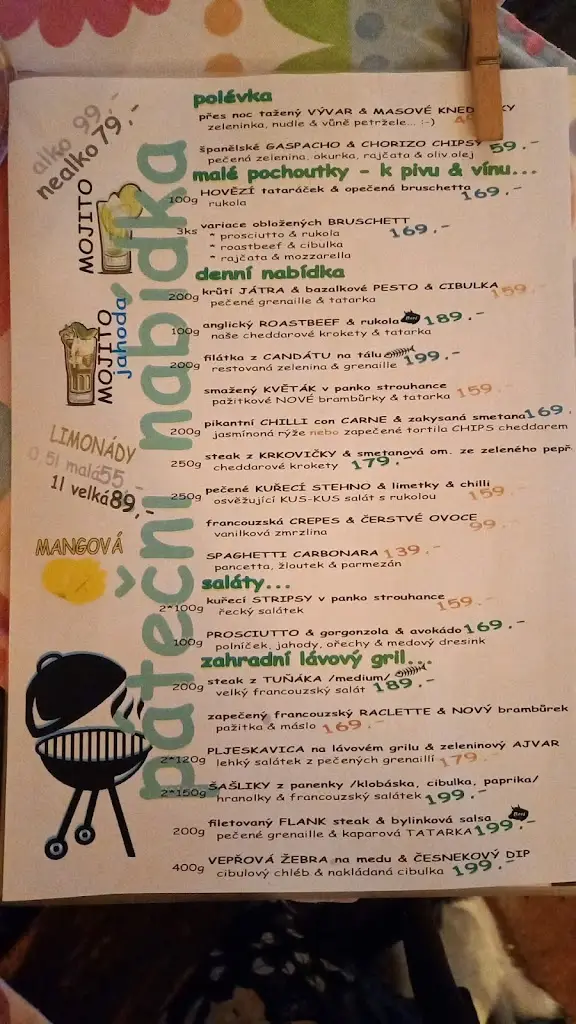 alko 99,-
nealko 79,-
MOJITO
MOJITO
jahoda
LIMONÁDY
0,5l malá 55,-
1l velká 89,-
MANGOVÁ
páteční nabídka
polévka
přes noc tažený VÝVAR & MASOVÉ
zeleninka, nudle & vůně petržele... :-)
španělské GASPACHO & CHORIZO CHIPSY 59.-
pečená zelenina, okurka, rajčata & oliv olej
malé pochoutky - k pivu & vínu...
100g HOVĚZÍ tataráček & opečená bruschetta 169.-
rukola
3ks variace obložených BRUSCHETT 169.-
* prosciutto & rukola
* roastbeef & cibulka
* rajčata & mozzarella
denní nabídka
200g krůtí JÁTRA & bazalkové PESTO & CIBULKA 159.-
pečené grenaille & tatarka
100g anglický ROASTBEEF & rukola 189.-
naše cheddarové krokety & tatarka
200g filátka z CANDÁTU na tálu 199.-
restovaná zelenina & grenaille
smažený KVĚTÁK v panko strouhance 159.-
pažitkové NOVÉ brambůrky & tatarka
200g pikantní CHILLI con CARNE & zakysaná smetana 169.
jasmínoná rýže nebo zapečené tortila CHIPS cheddarem
250g steak z KRKOVIČKY & smetanová om. ze zeleného pepř
cheddarové krokety 179.-
250g pečené KUŘECÍ STEHNO & limetky & chilli 159.-
osvěžující KUS-KUS salát s rukolou
francouzská CREPES & ČERSTVÉ OVOCE 99.-
vanilková zmrzlina
SPAGHETTI CARBONARA 139.-
pancetta, žloutek & parmezán
saláty...
2*100g kuřecí STRIPSY v panko strouhance 159.-
řecký salátek
100g PROSCIUTTO & gorgonzola & avokádo 169.-
polníček, jahody, ořechy & medový dresink
zahradní lávový gril...
200g steak z TUŇÁKA /medium/ 189.-
velký francouzský salát
zapečený francouzský RACLETTE & NOVÝ brambůrek
pažitka & máslo 169.-
2*120g PLJESKAVICA na lávovém grilu & zeleninový AJVAR
lehký salátek z pečených grenaillí 179.-
2*150g ŠAŠLIKY z panenky /klobáska, cibulka, paprika/
hranolky & francouzský salátek 199.-
200g filetovaný FLANK steak & bylinková salsa
pečené grenaille & kaparová TATARKA 199.-
400g VEPŘOVÁ ŽEBRA na medu & ČESNEKOVÝ DIP
cibulový chléb & nakládaná cibulka 199.-